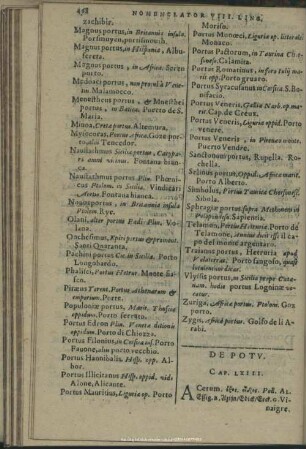 458
NOMENCLATOR VIII. LING.
zachibir.
Magnus portus, in Britanniæ insula.
Portsmoyen, portissimouth.
Magnus portus, in Hispania, Albuferera.
Magnus portus, in Africa.
porto.
Medoaci portus, non procul à Venetiis. Malamocco.
Menestheus portus, & Mnesthei
portus, in Bætica. Puerto de S.
Maria.
Minoa, Creta portus. Altemura.
portus,
Tencedor.
Naustathmus Siciliæ portus,
Fontana bianca.
Naustathmus portus Plin. Phœnicus Ptolem. in Sicilia. Vindicari
Fontana bianca.
Nouus portus, in Britanniæ insula
Ptolem. Rye.
Olani, alter portus Padi Plin. Volana.
Onchesmus, Epiri portus
Santi Quaranta.
Pachini portus Cic. in Sicilia. Porto
Longobardo.
Phalisci, portus Hetrur. Monte fiascon.
Piræus Terent. Portus Atheniensium &
emporium. Porte.
Populoniæ portus,
oppidum. Porto ferrato.
Portus Edron Plin. Veneta ditionis
oppidum. Porto di Chiozza.
Portus Filonius, in Corsica insul. Porto
Fauone, alim porto vecchio.
Portus Hannibalis. Hisp. opp. Alhor.
Portus Illicitanus Hisp. oppid.
Alone. Alicante.
Portus Mauritius, Liguria op. Porto
Moriso.
Portus Monœci, Liguria op. littorale.
Monaco.
Portus Pastorum, in Taurica Chersoneso. Calamita.
Portus Romatinus, in foro Iulij maris opp. Porto gruaro.
Portus Syracusanus in Corsica. S. Bonifacio.
Portus Veneris, Gallia Narb. op. maris. Cap. de Creuz.
Portus Veneris, Liguria oppid. Porto
venere.
Portus Veneris, in Pireneo monte,
Puerto Vendre.
Sanctonum portus, Rupella. Rochella.
Selinus portus, Oppid. Africæ marit.
Porto Alberto.
Simbulus, Portus Taurica Chersonesi.
Sibola.
Sphragiæ portus supra Methonem in
Peloponneso. Sapientia.
Telamon, Portus Hetruriæ. Porto de
Telamone,
po del monte argentaro.
Traianus portus, Hetruria oppid.
Volaterræ. Porto fangoso,
Vlyssis portus, in Sicilia prope Catanam. hodie portus Lognina vocatur.
Zuriga, Africa portus. Ptolem.
porto.
Zygis, Africa portus. Golfo de li Arabi.
DE POTV.
CAP. LXIII.
Vinaigre.